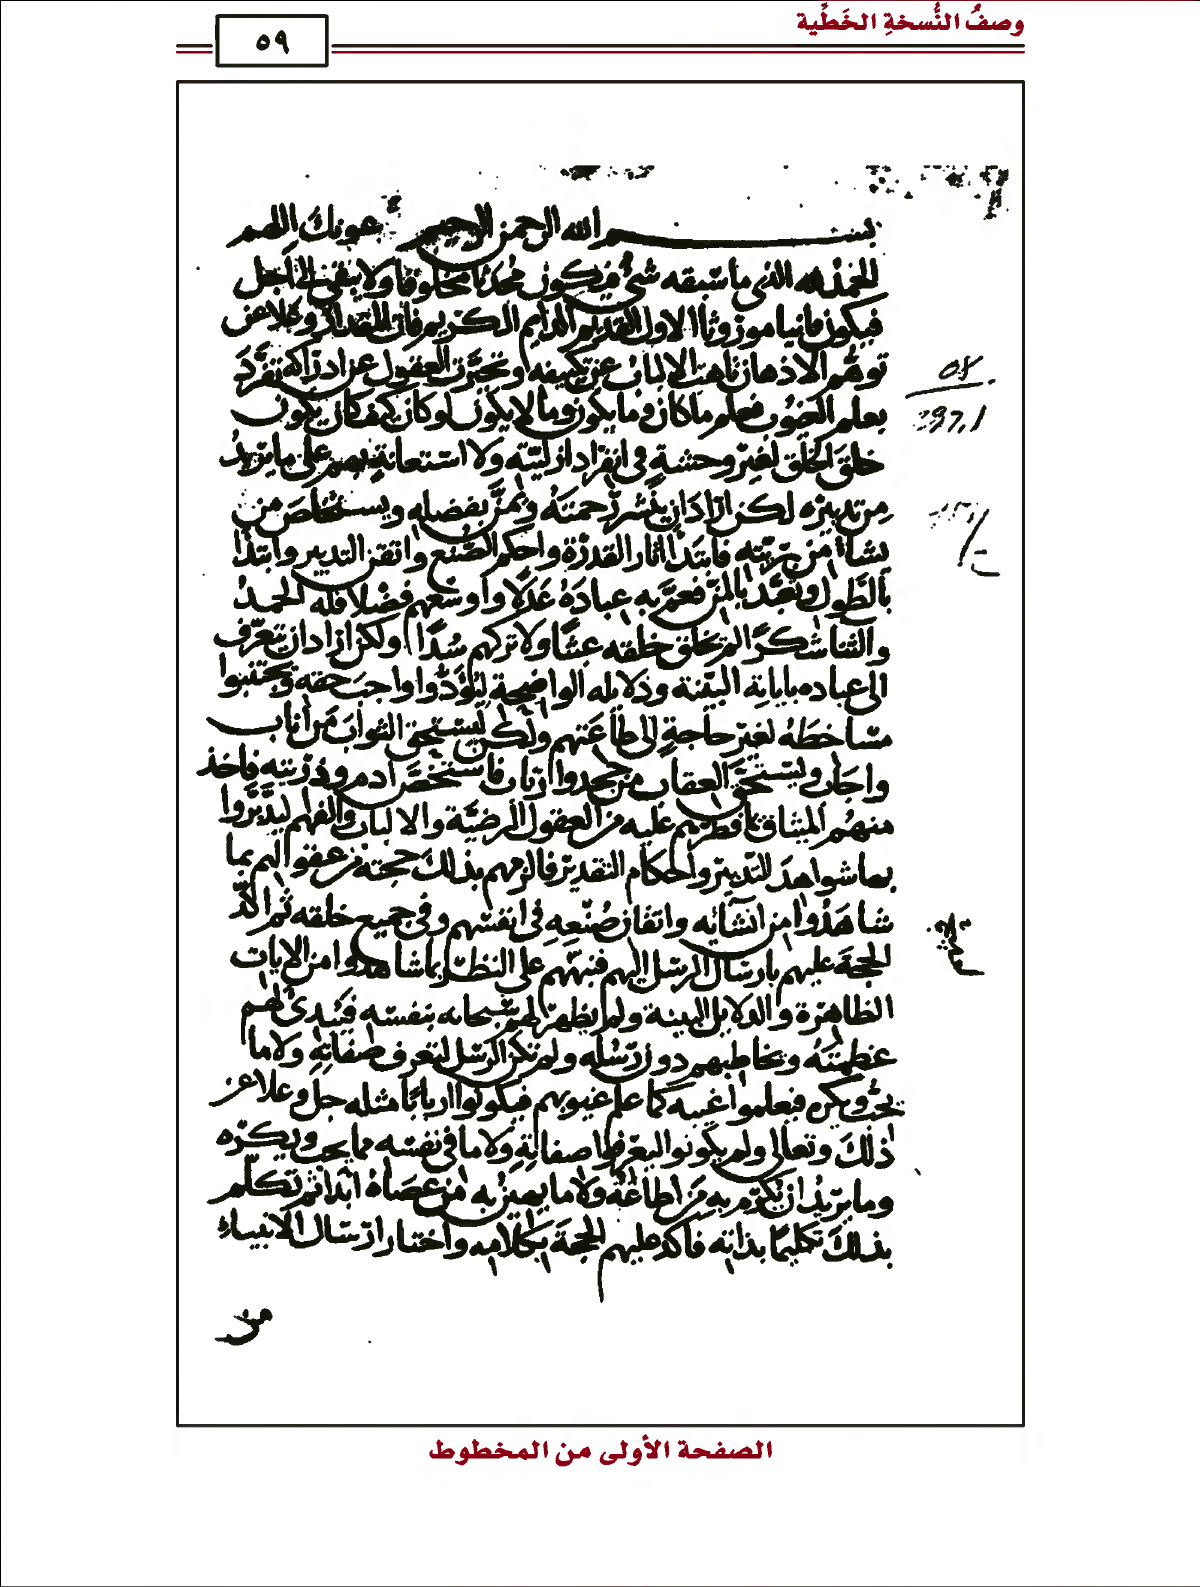 وصفُ النُّسخةِ الخَطِّية
٥٩
بسم الله الرحمن الرحيم عونك اللهم
الحمد لله الذي ما سبقه شيء فيكون محدثا مخلوقا ولا بقي إلى أجل
فيكون فانيا موروثا الاول القديم الدايم الكريم فات المقدار وعلا عن
توهم الاذهان تاهت الالباب عن تكييفه وتحيرت العقول عن ادراكه تفرد
بعلم الغيوب فعلم ما كان وما يكون وما لا يكون لو كان كيف كان يكون
خلق الخلق لغير وحشة في انفراد ازليته ولا استعانة بهم على ما يريد
من تدبيره لكن اراد ان ينشر رحمته ويمن بفضله ويستخلص من
يشاء من بريته فابتدا اثار القدرة واحكم الصنع واتقن التدبير وابتدا
بالطول بالمن فعم به عباده عدلا واوسعهم فضلا فله الحمد
والثنا شكرا لم يخلق خلقه عبثا ولا تركهم سدا ولكن اراد ان يتعرف
الى عباده باياته البينة ودلايله الواضحة ليؤدوا واجب حقه ويجتنبوا
مساخطه لغير حاجة الى طاعتهم ولكن ليستحق الثواب من اناب
واجاب وليستحق العقاب من جحد وارتاب فاستخص ادم وذريته فاخذ
منهم الميثاق بما فطرهم عليه من العقول الرضية والالباب والفهم ليدبروا
بها شواهد التدبير واحكام التقدير فالزمهم بذلك حجته من عقولهم بما
شاهدوا من انشائه واتقان صنعه في انفسهم وفي جميع خلقه ثم اكد
الحجة عليهم بارسال الرسل اليهم فنبههم على النظر بما شاهدوا من الايات
الظاهرة والدلايل البينة ولم يظهر لهم سبحانه بنفسه فيبدي لهم
عظمته ويخاطبهم دون رسله ولم تكن الرسل لتعرف صفاته ولا ما
يحب ويكره فيعلموا غيبه كما علم غيوبهم فيكونوا اربابا مثله جل وعلا عن
ذلك وتعالى ولم يكونوا ليعرفوا صفاته ولا ما في نفسه مما يحب ويكره
وما يريد ان يكرم به من اطاعه ولا ما يهين به من عصاه ابدا ثم تكلم
بذلك تكليما بذاته فاكد عليهم الحجة بكلامه واختار ارسال الانبياء
من
الصفحة الأولى من المخطوط